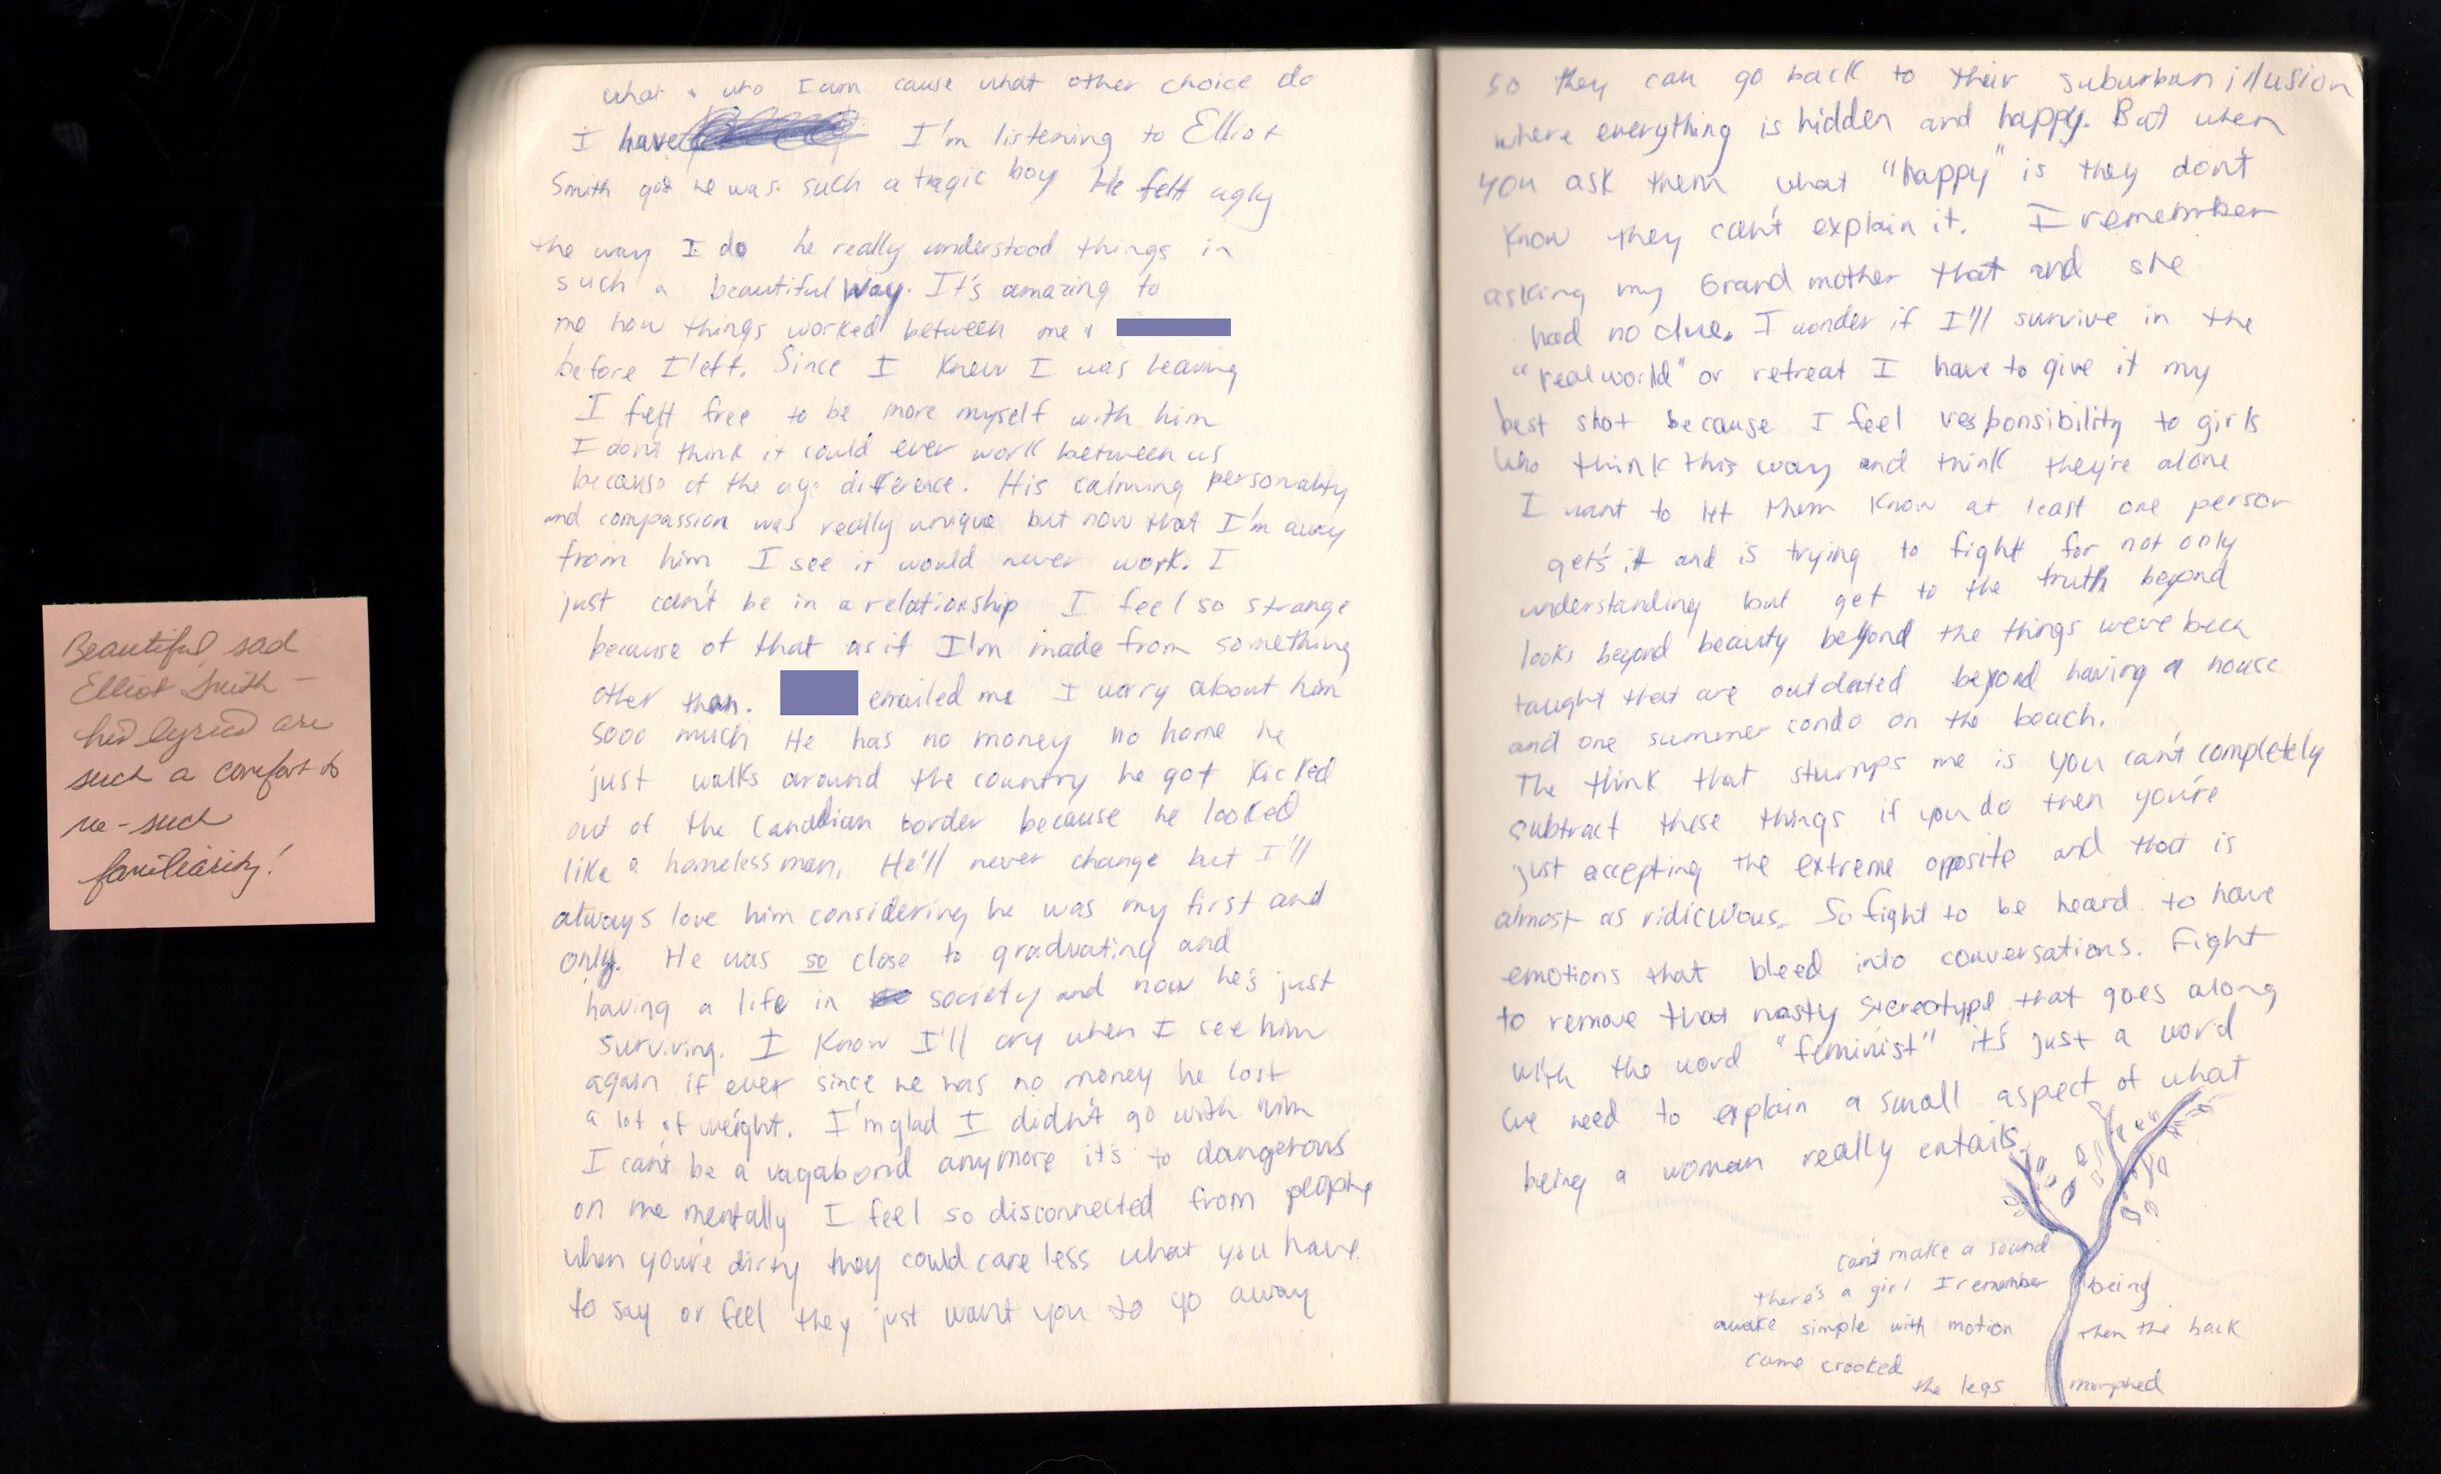 Beautiful sad
Elliot Smith -
his lyrics are
such a comfort to
me - such
familiarity!
what & who I am cause what other choice do
I have I'm listening to Elliot
Smith god he was such a tragic boy He felt ugly
the way I do he really understood things in
such a beautiful way. It's amazing to
me how things worked between me &
before I left. Since I knew I was leaving
I felt free to be more myself with him
I don't think it could ever work between us
because of the age difference. His calming personality
and compassion was really unique but now that I'm away
from him I see it would never work. I
just can't be in a relationship I feel so strange
because of that as if I'm made from something
other than. emailed me I worry about him
sooo much He has no money no home he
just walks around the country he got kicked
out of the Canadian border because he looked
like a homeless man. He'll never change but I'll
always love him considering he was my first and
only. He was so close to graduating and
having a life in society and now he's just
surviving. I know I'll cry when I see him
again if ever since he has no money he lost
a lot of weight. I'm glad I didn't go with him
I can't be a vagabond anymore it's to dangerous
on me mentally I feel so disconnected from people
when you're dirty they could care less what you have
to say or feel they just want you to go away
so they can go back to their suburban illusion
where everything is hidden and happy. But when
you ask them what "happy" is they don't
know they can't explain it. I remember
asking my Grand mother that and she
had no clue. I wonder if I'll survive in the
"real world" or retreat I have to give it my
best shot because I feel responsibility to girls
who think this way and think they're alone
I want to let them know at least one person
get's it and is trying to fight for not only
understanding but get to the truth beyond
looks beyond beauty beyond the things we've been
taught that are outdated beyond having a house
and one summer condo on the beach.
The think that stumps me is you can't completely
subtract these things if you do then you're
just accepting the extreme opposite and that is
almost as ridiculous. So fight to be heard to have
emotions that bleed into conversations. Fight
to remove that nasty stereotype that goes along
with the word "feminist" it's just a word
we need to explain a small aspect of what
being a woman really entails.
can't make a sound
there's a girl I remember being
awake simple with motion then the back
came crooked
the legs morphed